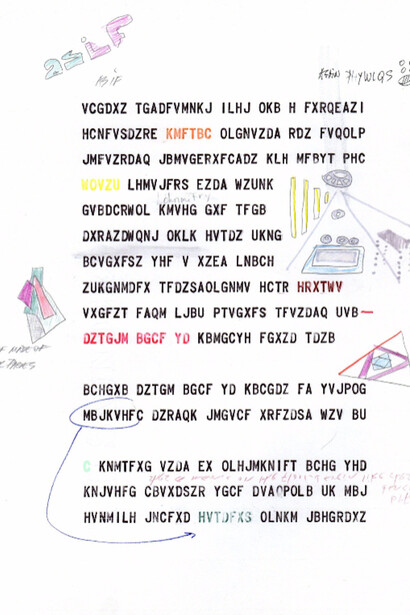 asiF
ASIF
VCGDXZ TGADFVMNKJ ILHJ OKB H FXRQEAZI
HCNFVSDZRE KMFTBC OLGNVZDA RDZ FVQOLP
JMFVZRDAQ JBMVGERXFCADZ KLH MFBYT PHC
WGVZU LHMVJFRS EZDA WZUNK
GVBDCRWOL KMVHG GXF TFGB
DXRAZDWQNJ OKLK HVTDZ UKNG
BCVGXFSZ YHF V XZEA LNBCH
ZUKGNMDFX TFDZSAOLGNMV HCTR HRXTWV
VXGFZT FAQM LJBU PTVGXFS TFVZDAQ UVB—
DZTGJM BGCF YD KBMGCYH FGXZD TDZB
BCHGXB DZTGM BGCF YD KBCGDZ FA YVJPOG
MBJKVHFC DZRAQK JMGVCF XRFZDSA WZV BU
C KNMTFXG VZDA EX OLHJMKNIFT BCHG YHD
KNJVHFG CBVXDSZR YGCF DVAQPOLB UK MBJ
HVNMILH JNCFXD HVTDFXS OLNKM JBHGRDXZ